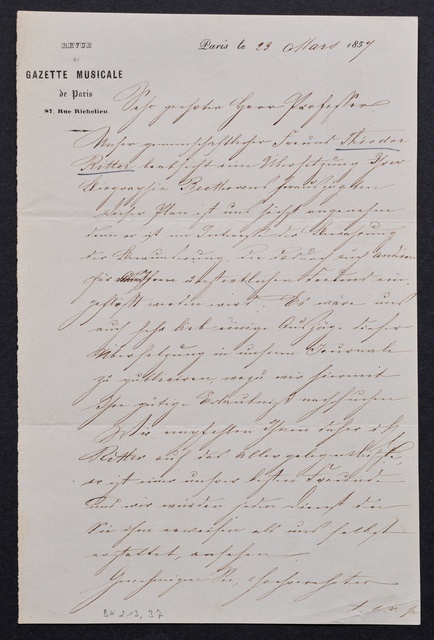 REVUE
ET
GAZETTE MUSICALE
de Paris
87, Rue Richelieu.
Paris le 23 Mars 1857
Sehr geehrter Herr Professor
Unser gemeinschaftlicher Freund Theodor
Ritter beabsichtigt eine Übersetzung Ihrer
Biographie Beethovens
Dieser Plan ist uns höchst angenehm
denn er ist im Interesse der
der Bewunderung, die
für unsterblichen
werden wird. Es wäre uns
auch sehr lieb einige Auszüge dieser
Übersetzung in unserm Journale
zu publiciren, wozu wir hiermit
Ihre gütige Erlaubniß nachsuchen
Wir empfehlen Ihnen daher
Ritter auf das
er ist einer unsrer besten Freunde
und wir würden jeden Dienst den
Sie ihm erweisen als uns selbst
erstattet, ansehen.
Genehmigen Sie, hochverehrter
BH 213, 37